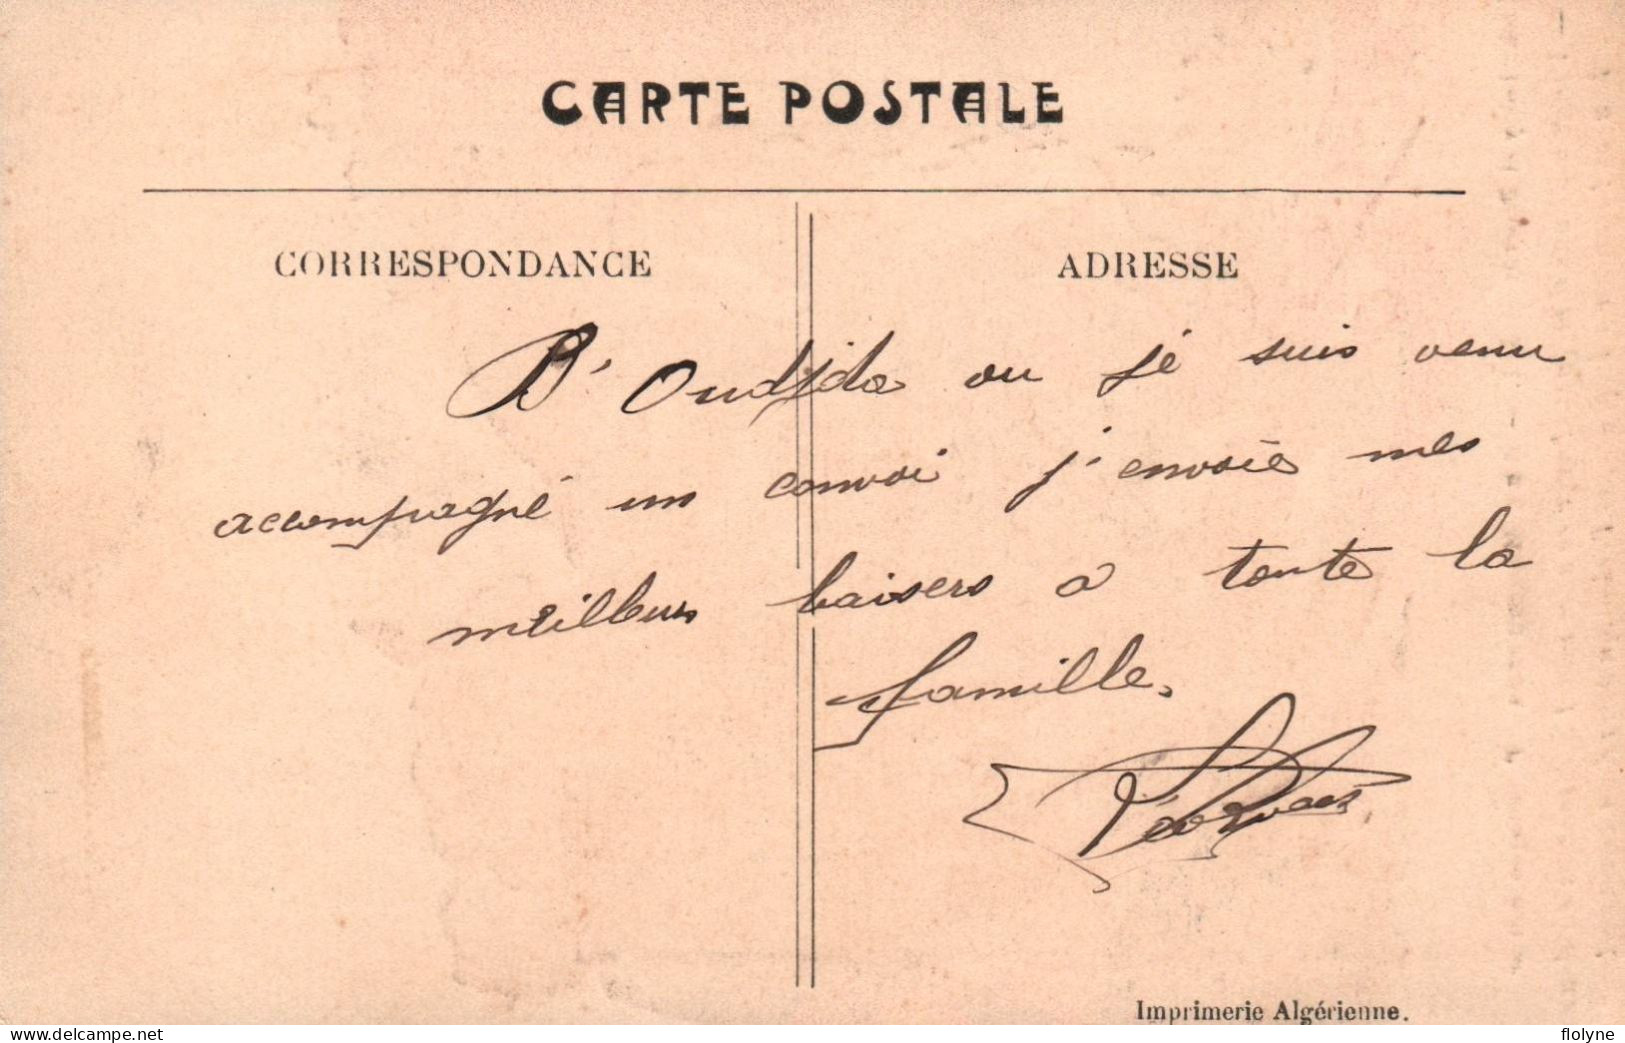 CARTE POSTALE
CORRESPONDANCE
ADRESSE
D'Oudjda ou je suis venu
accompagné un convoi j'envoie mes
meilleurs baisers a toute la
famille.
Imprimerie Algérienne.
www.delcampe.net
flolyne